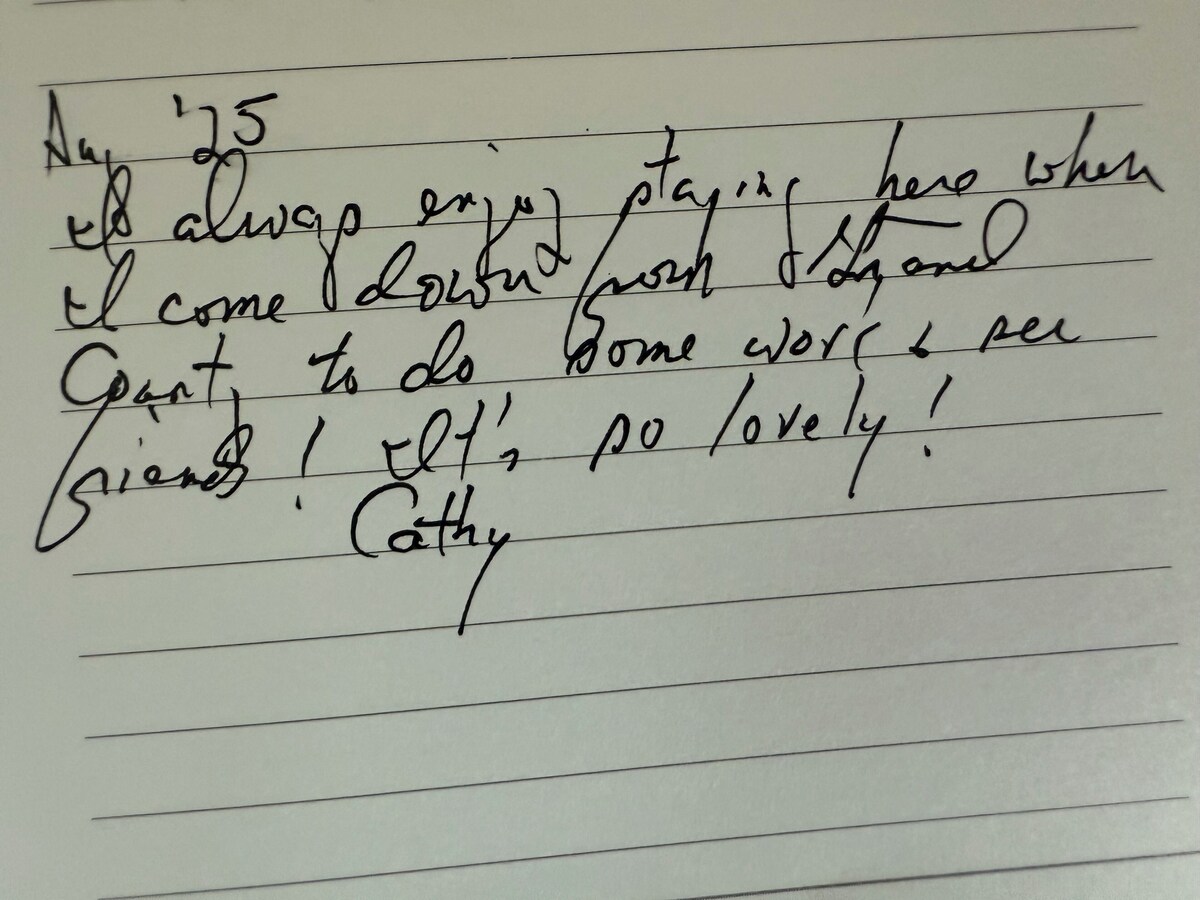 Aug '25
I always enjoy staying here when
I come down from
County to do some work & see
friends! It's so lovely!
Cathy